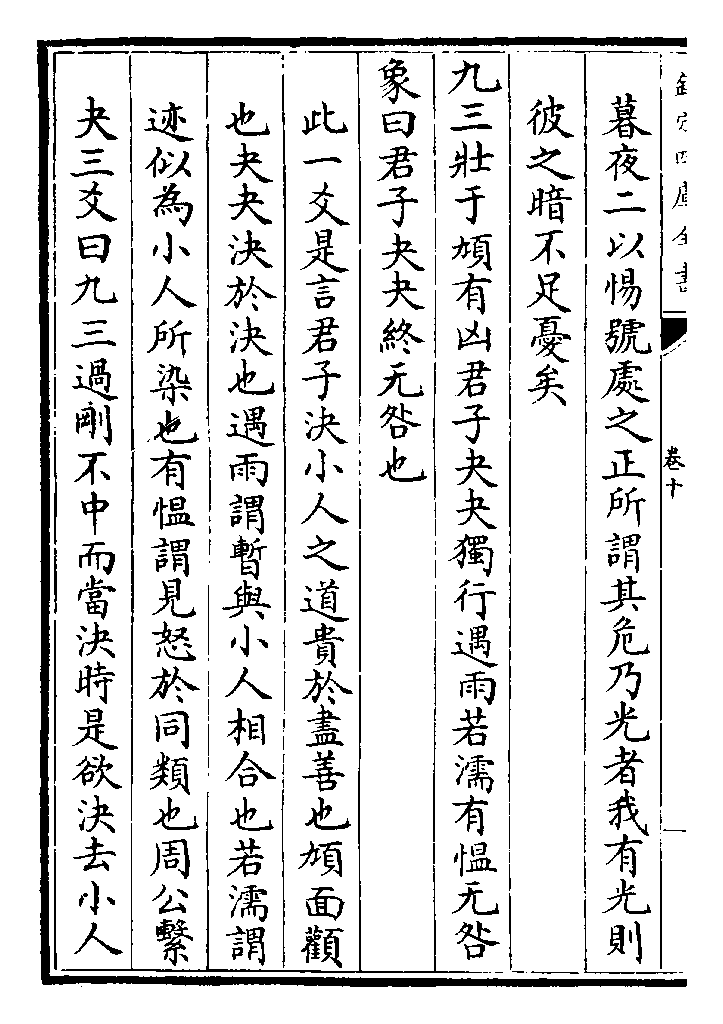 欽定四庫全書
卷十
暮夜二以惕號處之正所謂其危乃光者我有光則
彼之暗不足憂矣
九三壯于頄有凶君子夬夬獨行遇雨若濡有愠无咎
象曰君子夬夬終无咎也
此一爻是言君子決小人之道貴於盡善也頄面顴
也夬夬決於決也遇雨謂暫與小人相合也若濡謂
迹似為小人所染也有愠謂見怒於同類也周公繫
夬三爻曰九三過剛不中而當決時是欲決去小人